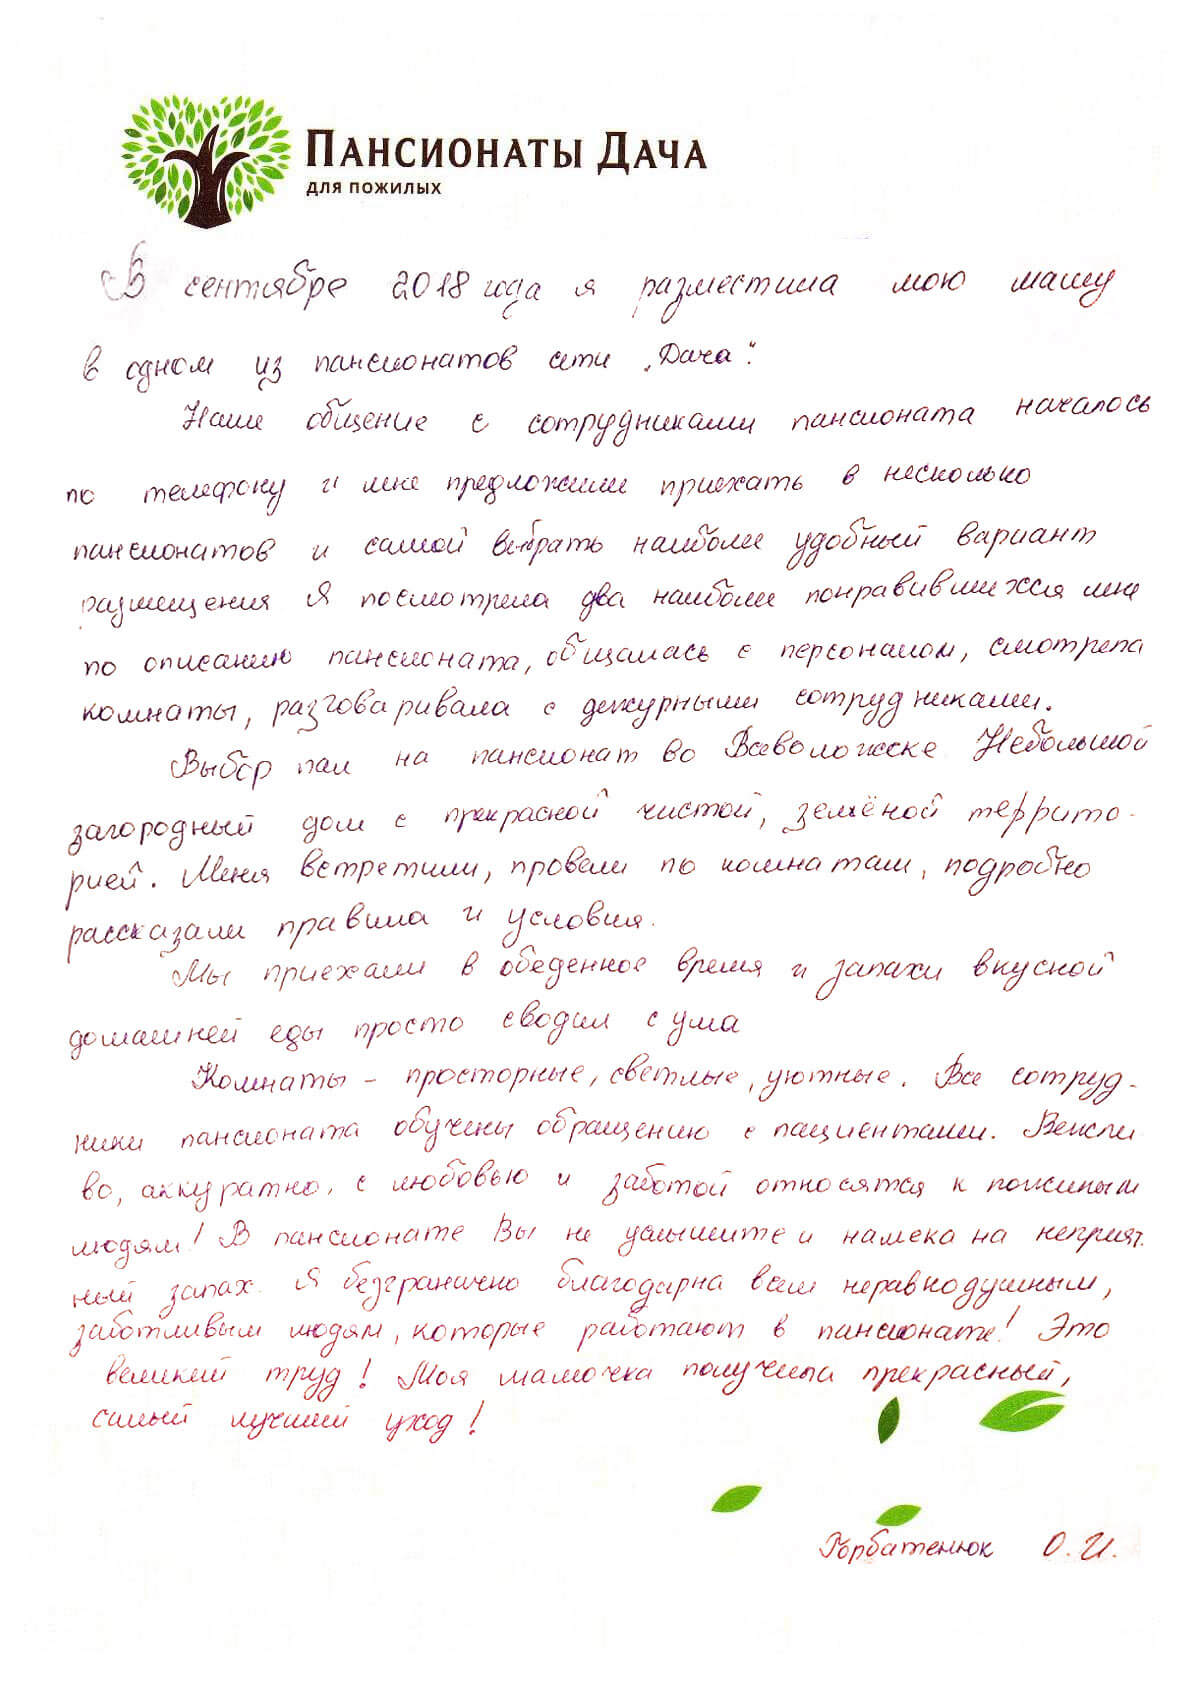 ПАНСИОНАТЫ ДАЧА
ДЛЯ ПОЖИЛЫХ
В сентябре 2018 года я разместила мою маму
в одном из пансионатов сети „Дача".
Наше общение с сотрудниками пансионата началось
по телефону и мне предложили приехать в несколько
пансионатов и самой выбрать наиболее удобный вариант
размещения Я посмотрела два наиболее понравившихся мне
по описанию пансионата, общалась с персоналом, смотрела
комнаты, разговаривала с дежурными сотрудниками.
Выбор пал на пансионат во Всеволожске Небольшой
загородный дом с прекрасной чистой, зелёной террито-
рией. Меня встретили, провели по комнатам, подробно
рассказали правила и условия.
Мы приехали в обеденное время и запахи вкусной
домашней еды просто сводил с ума
Комнаты - просторные, светлые, уютные. Все сотруд-
ники пансионата обучены обращению с пациентами. Вежли
во, аккуратно, с любовью и заботой относятся к пожилым
людям! В пансионате Вы не услышите и намека на неприят.
ный запах. Я безгранично благодарна всем неравнодушным,
заботливым людям, которые работают в пансионате! Это
великий труд! Моя мамочка получила прекрасный,
самый лучший уход!
Горбатенюк О.И.